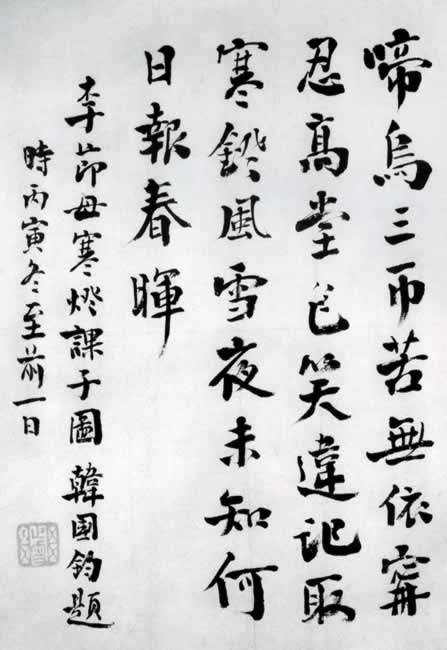 啼烏三帀苦無依甯
忍高堂色笑違記取
寒鐙風雪夜未知何
日報春暉
李節母寒燈課子圖 韓國鈞題
時丙寅冬至前一日